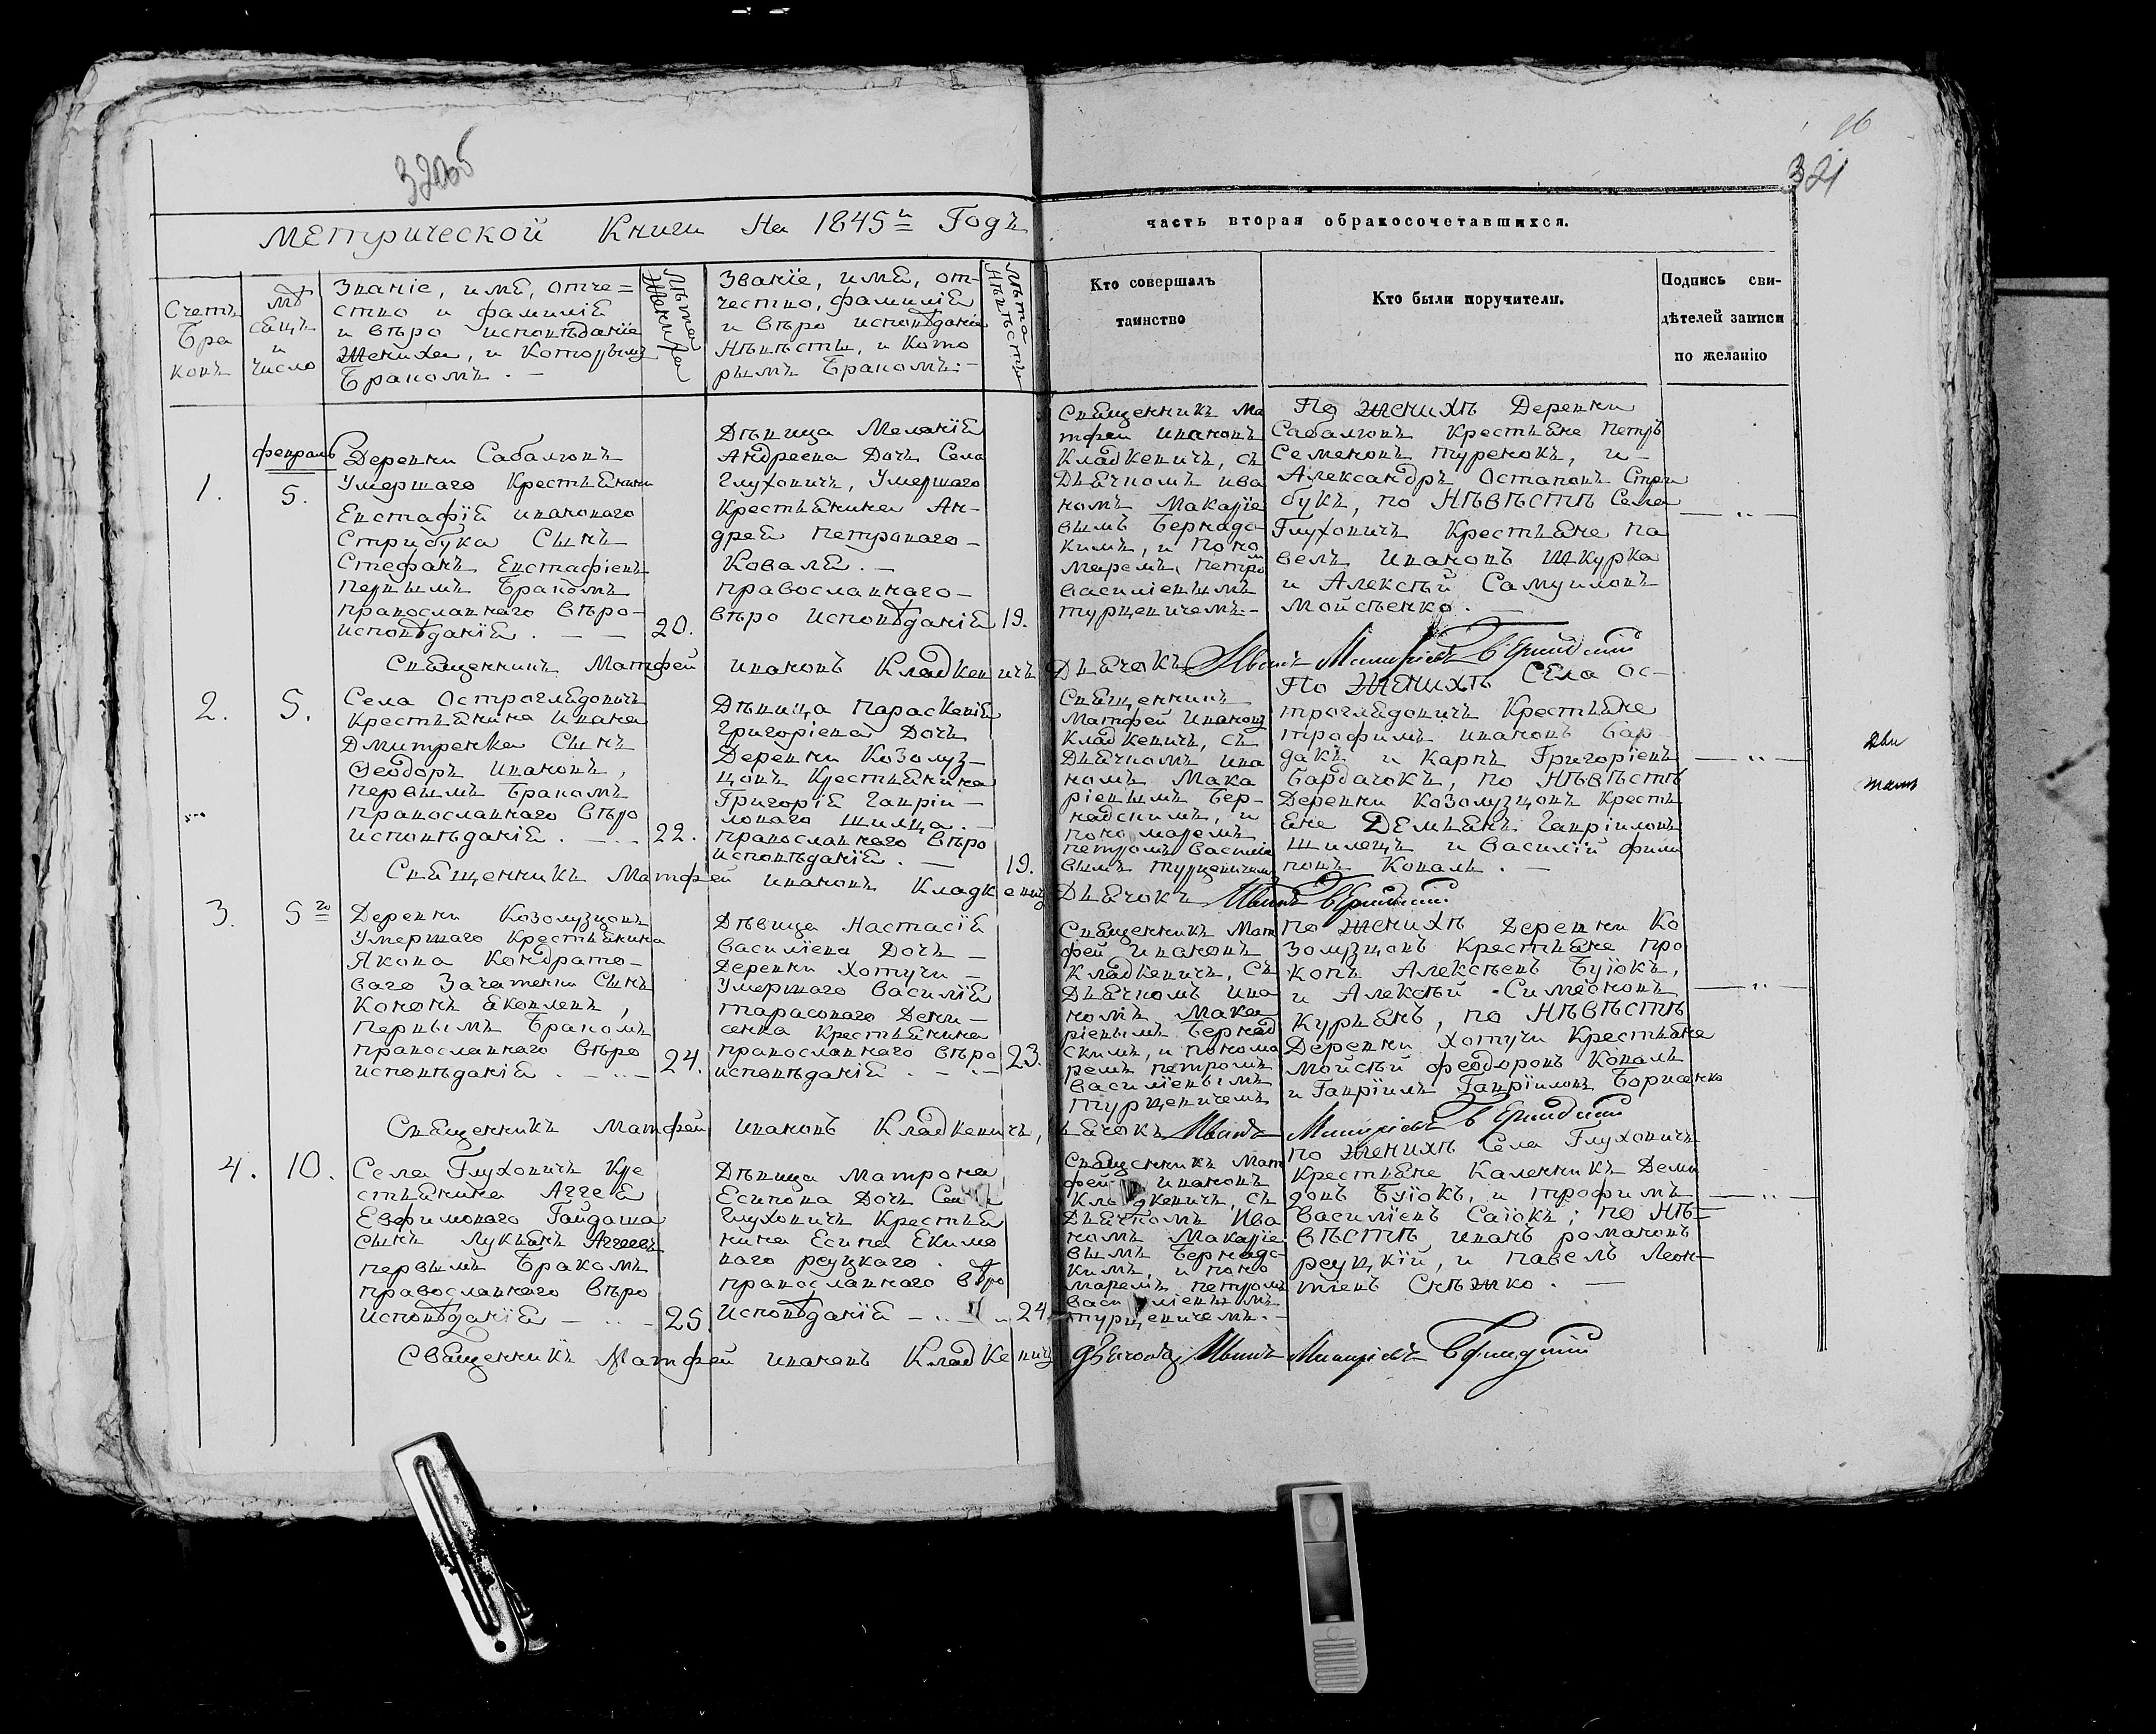 320об
16
321
Метрической Книги На 1845й Годъ
часть вторая обракосочетавшихся.
Счетъ
Бра
ковъ
мѣ
сяцъ
и
число
Званіе, имя, отче=
ство и фамилія
и вѣро исповѣданіе
Жениха, и Которымъ
Бракомъ. –
Лѣта
Жениха
Званїе, имя, от-
чество, фамилія
и вѣро исповѣданіе
Нѣвѣсты, и Кото
рымъ Бракомъ:-
Лѣта
Нѣвѣсты
Кто совершалъ
таинство
Кто были поручители.
Подпись сви-
дѣтелей записи
по желанію
1.
февраль
5.
Деревни Сабаловъ
Умершаго Крестьянина
Евстафїя ивановаго
Стрибука Сынъ
Стефанъ Евстафіевъ
первымъ Бракомъ
православнаго вѣро-
исповѣданїя. – –
20.
Дѣвица Меланїя
Андреева Дочь Села
Глуховичъ, Умершаго
Крестьянина Ан-
дрея петроваго-
Коваля. –
православнаго-
вѣро исповѣданія
19.
Священникъ Ма
тфей ивановъ
Кладкевичъ, съ
Дьячкомъ ива
номъ Макаріе
вымъ Бернадс-
кимъ, и поно
маремъ, петромъ
василіевымъ
турцевичемъ.-
По женихѣ Деревни
Сабаловъ Крестьяне петръ
Семеновъ туревокъ, и –
Александръ Остаповъ Стри
букъ, по Нѣвѣстѣ Села
Глуховичъ Крестьяне па
велъ ивановъ шкурка
и Алексѣй Самуиловъ
мойсѣенко. –
Священникъ Матфей ивановъ Кладкевичъ Дьячокъ Иванъ Макаріевъ Бернадскій
2.
5.
СелаОстрогляdовичъ
Крестьянина ивана
Дмитренка Сынъ
Ѳеодоръ ивановъ,
первымъ Бракомъ
православнаго вѣро
исповѣданія. – ..–
22.
Дѣвица параскевія
Григоріева Дочь
Деревни Козолуз-
цовъ Крестьянина
Григорія Гавріи-
ловаго шилца. –
православнаго вѣро
исповѣданїя. –
19.
Священникъ
Матфей Ивановъ
Кладкевичъ, съ
Дьячкомъ ива
номъ Мака
ріевымъ Бер-
надскимъ, и
поно маремъ
петромъ Василіе
вымъ турцевичемъ
По Женихѣ Села Ос-
трогляdовичъ Крестьяне
трофимъ ивановъ бар
дакъ и Карпъ Григоріевъ
бардачокъ, по Нѣвѣстѣ
Деревни Козолузцовъ Кресть
яне Демьянъ Гавріиловъ
шилецъ и василій фили
повъ Коваль. –
Священникъ Матфей ивановъ Кладкевичъ Дьячокъ Иванъ Бернадскій
3.
5го
Деревни Козолузцовъ
Умершаго Крестьянина
Якова Кондрато-
ваго Зачатенка Сынъ
Кононъ яковлевъ,
первымъ Бракомъ
православнаго вѣро
исповѣданія. – ..–
24.
Дѣвица Настасїя
василїева Дочь –
Деревни Хотучи –
Умершаго василїя
тарасоваго Дени-
сенка Крестьянина
православнаго вѣро
исповѣданїя. – ..–
23.
Священникъ Мат
фей ивановъ
Кладкевичъ, Съ
Дьячкомъ ива
номъ Мака
ріевымъ Бернад
скимъ, и понома
ремъ петромъ
василїевымъ
турцевичемъ
по женихѣ Деревни Ко
золузцовъ Крестьяне про
копъ Алексѣевъ Буїокъ,
и Алексѣй Симеоновъ
Курьянъ, по Нѣвѣстѣ
Деревни хотучи Крестьяне
мойсѣй феодоровъ Коваль
и Гавріилъ Гавріиловъ Борисенко
Священникъ Матфей ивановъ Кладкевичъ, Дьячокъ Иванъ Макаріевъ Бернадскій
4.
10.
Села Глуховичъ Кре
стьянина Аггея
Евфимоваго Гайдаша
сынъ Лукьянъ Аггеевъ
первымъ Бракомъ
православнаго вѣро
исповѣданія – .. –
25
Дѣвица матрона
Есипова Дочь Села
Глуховичъ Крестья
нина Есипа Екимо
ваго реуцкаго.
православнаго вѣро
исповѣданїя – ..
24.
Священникъ Мат
фей ивановъ
Кладкевичъ, съ
Дьячкомъ Ива
номъ Макаріе
вымъ Бернадс-
кимъ, и поно
маремъ петромъ
василіевымъ
турцевичемъ.-
по женихѣ Села Глуховичъ
Крестьяне Каленникъ Деми
довъ Буїокъ, и трофимъ
василїевъ Саїокъ; по Нѣ=
вѣстѣ, иванъ романовъ
реуцкїй, и павелъ Леон-
тїевъ Снѣжко. –
Священникъ Матфей ивановъ Кладкевичъ дьячокъ Иванъ Макаріевъ Бернадскій